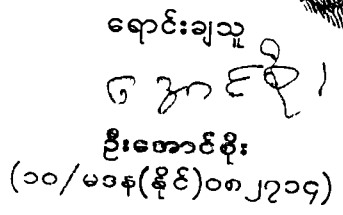 ရောင်းချသူ
အောင်စိုး
ဦးအောင်စိုး
(၁၀/မဒန(နိုင်)၀၈၂၇၁၄)